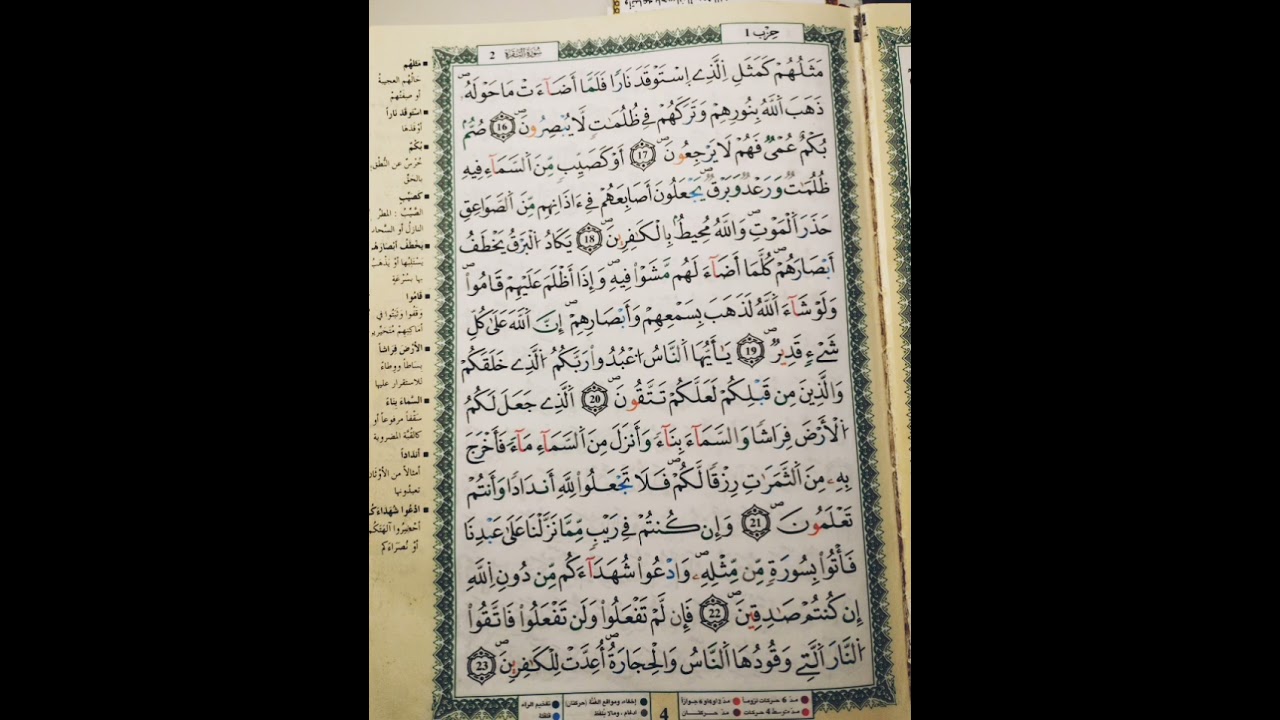 حِزْب 1
سُورَةُ البَقَرَة 2
مَثَلُهُمْ كَمَثَلِ اِلَّذِے اِسْتَوْقَدَ نَارًا فَلَمَّا أَضَآءَتْ مَا حَوْلَهُۥ
ذَهَبَ اَللَّهُ بِنُورِهِمْ وَتَرَكَهُمْ فِے ظُلُمَٰتٍ لَّا يُبْصِرُونَ 16 صُمُّۢ
بُكْمٌ عُمْيٌ فَهُمْ لَا يَرْجِعُونَ 17 أَوْ كَصَيِّبٍ مِّنَ اَلسَّمَآءِ فِيهِ
ظُلُمَٰتٌ وَرَعْدٌ وَبَرْقٌ يَجْعَلُونَ أَصَٰبِعَهُمْ فِےٓ ءَاذَانِهِم مِّنَ اَلصَّوَٰعِقِ
حَذَرَ اَلْمَوْتِ وَاللَّهُ مُحِيطُۢ بِالْكَٰفِرِينَ 18 يَكَادُ اُلْبَرْقُ يَخْطَفُ
أَبْصَٰرَهُمْ كُلَّمَآ أَضَآءَ لَهُم مَّشَوْاْ فِيهِ وَإِذَآ أَظْلَمَ عَلَيْهِمْ قَامُواْ
وَلَوْ شَآءَ اَللَّهُ لَذَهَبَ بِسَمْعِهِمْ وَأَبْصَٰرِهِمْ إِنَّ اَللَّهَ عَلَىٰ كُلِّ
شَےْءٍ قَدِيرٌ 19 يَٰٓأَيُّهَا اَلنَّاسُ اُعْبُدُواْ رَبَّكُمُ اُلَّذِے خَلَقَكُمْ
وَالَّذِينَ مِن قَبْلِكُمْ لَعَلَّكُمْ تَتَّقُونَ 20 اَلَّذِے جَعَلَ لَكُمُ
اُلْأَرْضَ فِرَٰشًا وَالسَّمَآءَ بِنَآءً وَأَنزَلَ مِنَ اَلسَّمَآءِ مَآءً فَأَخْرَجَ
بِهِۦ مِنَ اَلثَّمَرَٰتِ رِزْقًا لَّكُمْ فَلَا تَجْعَلُواْ لِلهِ أَندَادًا وَأَنتُمْ
تَعْلَمُونَ 21 وَإِن كُنتُمْ فِے رَيْبٍ مِّمَّا نَزَّلْنَا عَلَىٰ عَبْدِنَا
فَأْتُواْ بِسُورَةٍ مِّن مِّثْلِهِۦ وَادْعُواْ شُهَدَآءَكُم مِّن دُونِ اِللَّهِ
إِن كُنتُمْ صَٰدِقِينَ 22 فَإِن لَّمْ تَفْعَلُواْ وَلَن تَفْعَلُواْ فَاتَّقُواْ
اُلنَّارَ اَلَّتِے وَقُودُهَا اَلنَّاسُ وَالْحِجَارَةُ أُعِدَّتْ لِلْكَٰفِرِينَ 23
مَثَلُهُم
حالُهُم العجيبةُ
أو صِفَتُهُمْ
اسْتَوْقَدَ نَاراً
أوْقَدَها
بُكْمٌ
خُرْسٌ عن النُّطْقِ
بالحَقِّ
كَصَيِّبٍ
الصَّيِّبُ : المطَرُ
النازلُ أو السَّحابُ
يَخْطَفُ أَبْصَارَهُمْ
يَسْتَلِبُها أوْ يَذْهَبُ
بها بسُرْعَةٍ
قَامُوا
وَقَفُوا وَثَبَتُوا في
أماكِنِهِمْ مُتَحَيِّرِين
الأَرْضَ فِرَاشاً
بِساطاً ووِطاءً
للاستقرار عليها
السَّماءَ بِنَاءً
سَقْفاً مرفوعاً أو
كالقُبَّة المضروبة
أنداداً
أمثالاً من الأوْثان
تعبدُونها
ادْعُوا شُهَدَاءَكُم
أحْضِرُوا آلهتَكُمْ
أوْ نُصَرَاءَكم
مدّ 6 حركات لزوماً مدّ 2 أو 4 أو 6 جوازاً إخفاء، ومواقع الغُنَّة (حركتان) تفخيم الراء
مدّ متوسط 4 حركات مدّ حركتان 4 إدغام، وما لا يُلفظ قلقلة